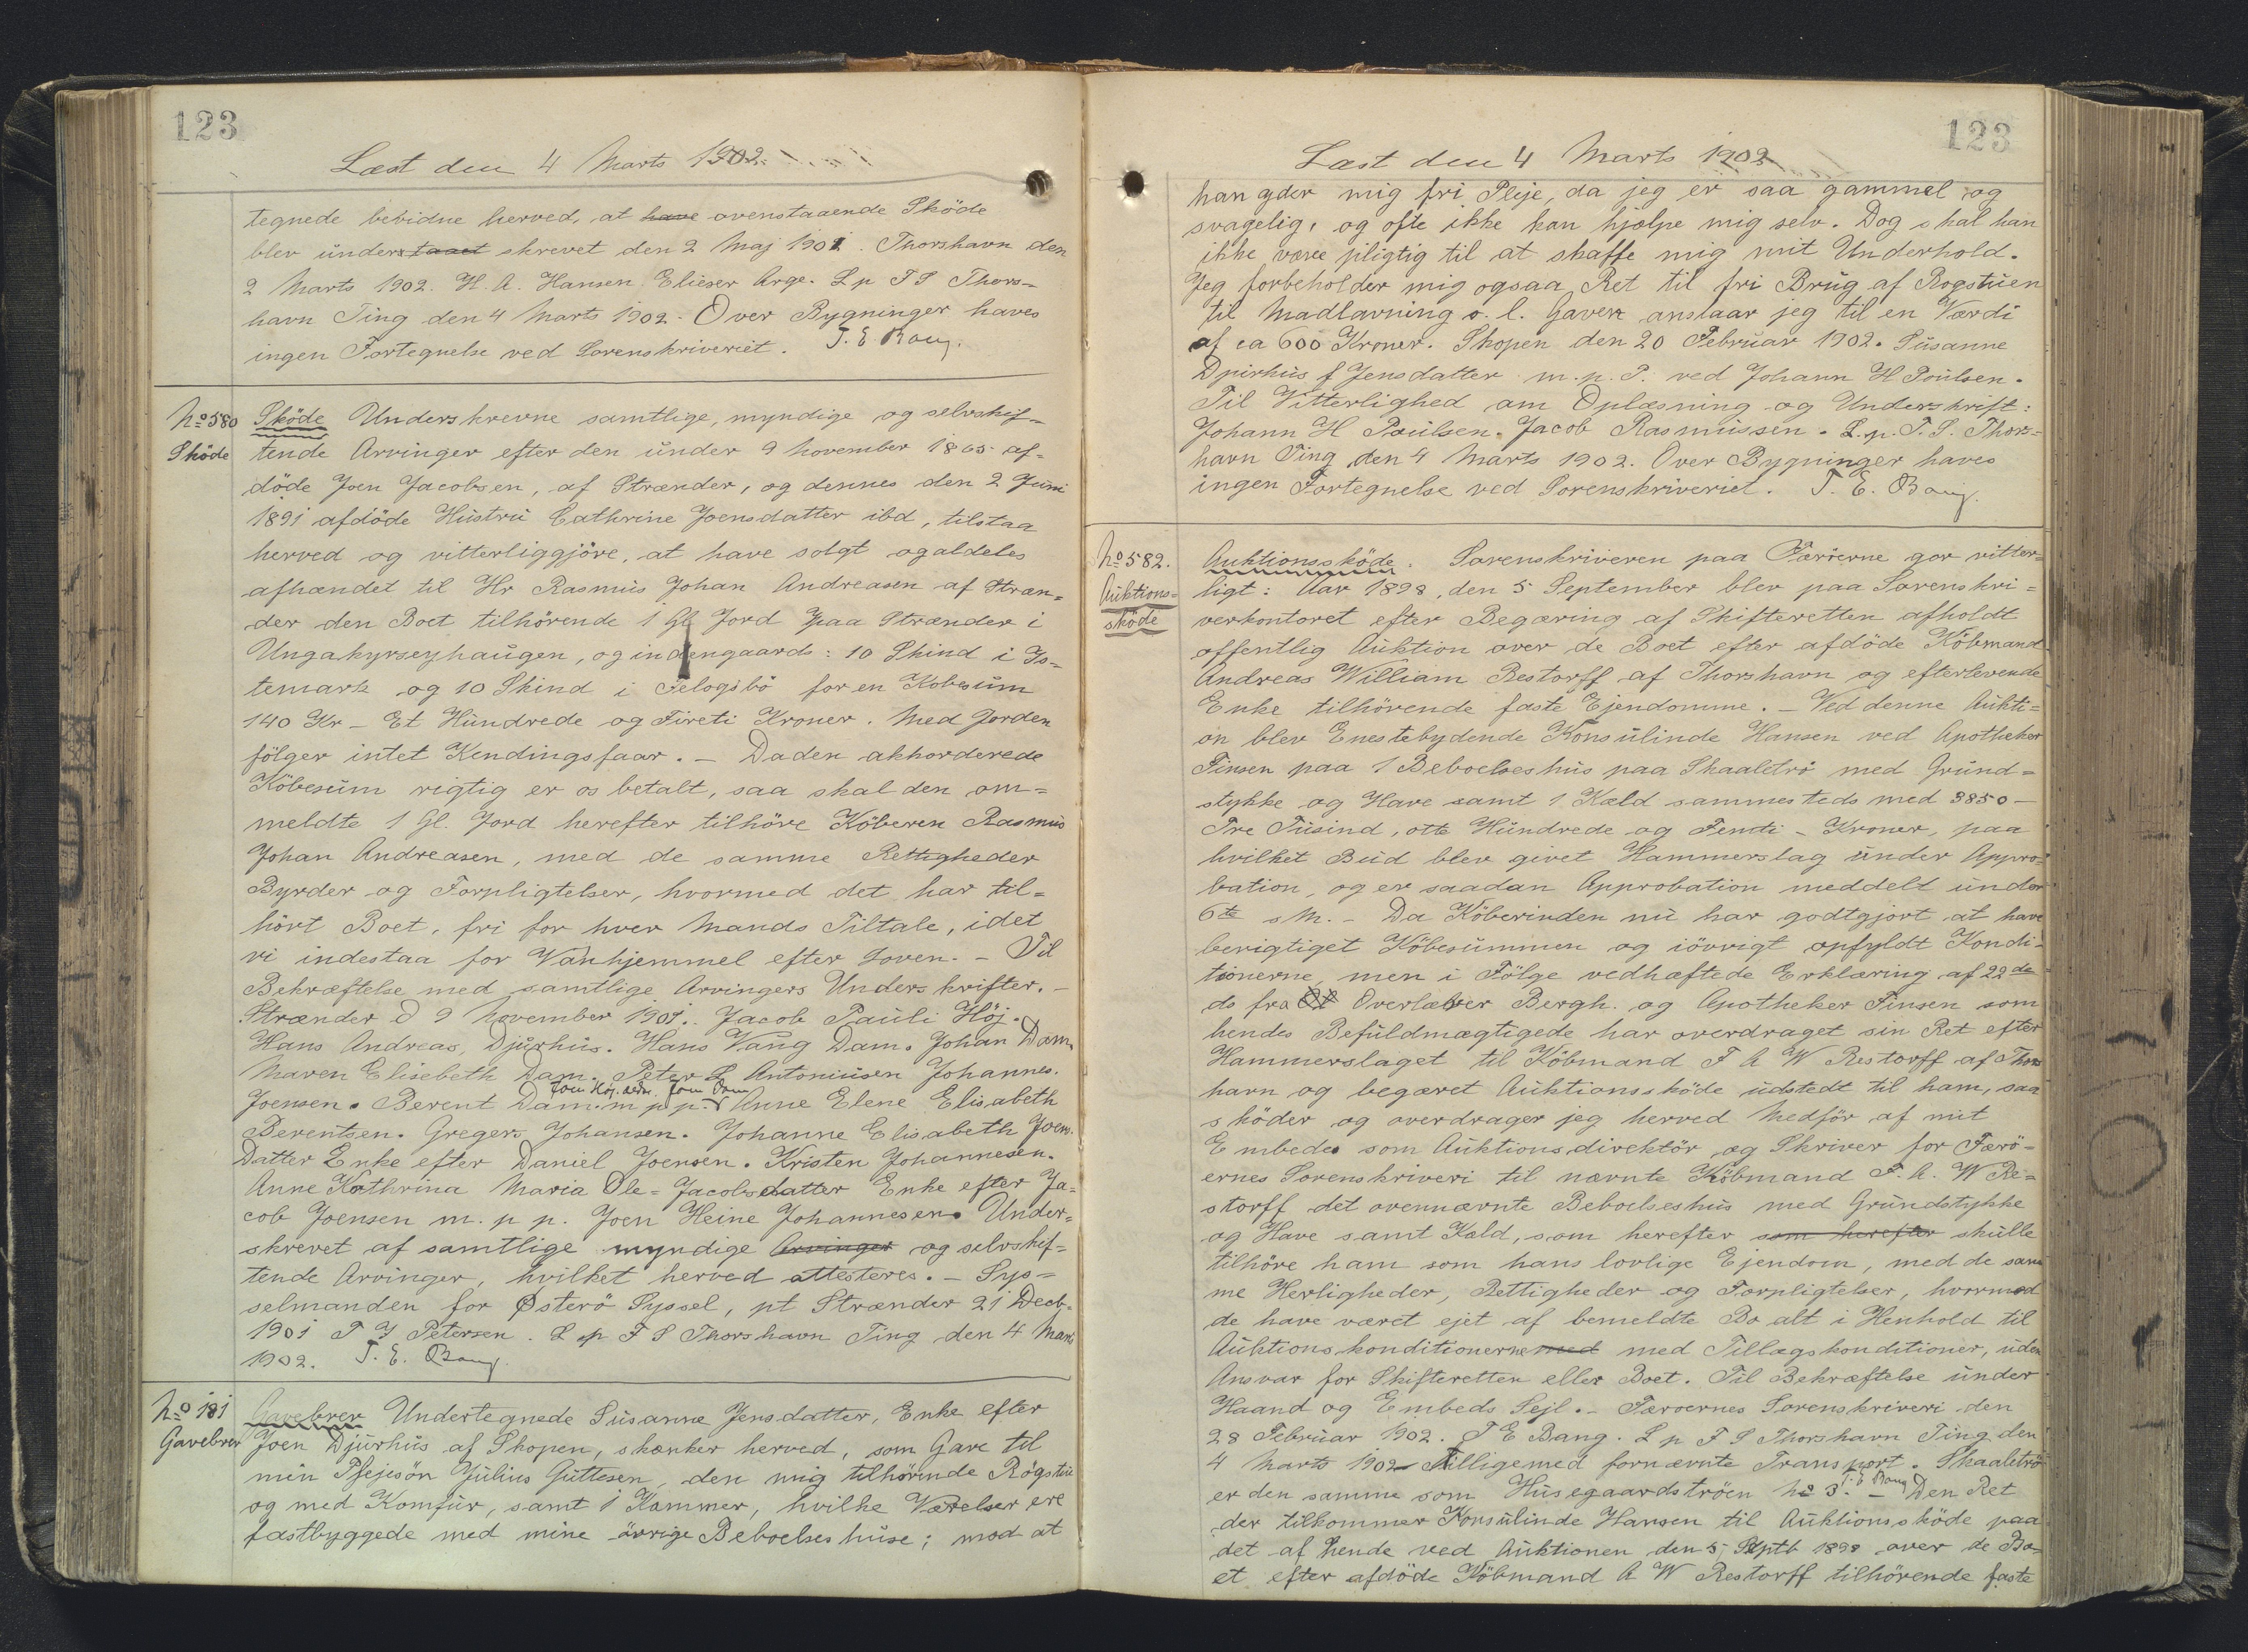 123
Læst den 4 Marts 1902.
tegnede bevidne herved, at have ovenstaaende Sköde
blev understaaet skrevet den 2 Maj 1901. Thorshavn den
2 Marts 1902. H. A. Hansen Elieser Arge. L p F S Thors=
havn Ting den 4 Marts 1902. Over Bygninger haves
ingen Fortegnelse ved Sorenskriveriet. T. E. Bang.
No 580
Sköde
Sköde Underskrevne samtlige, myndige og selvskif=
tende Arvinger efter den under 9 November 1865 af=
döde Joen Jacobsen, af Strænder, og dennes den 2 Juni
1891 afdöde Hustru Cathrine Joensdatter ibd, tilstaa
herved og vitterliggjöre, at have solgt og aldeles
afhændet til Hr Rasmus Johan Andreasen af Stræn=
der den Boet tilhörende 1 Gl Jord paa Strænder i
Ungakyrseyhaugen, og indengaards: 10 Skind i Is=
temark og 10 Skind i Felogsbö for en Kobesum
140 Kr – Et Hundrede og Fireti Kroner. Med Jorden
fölger intet Kendingsfaar. – Da den akkorderede
Köbesum rigtig er os betalt, saa skal den om=
meldte 1 Gl. Jord herefter tilhöre Köberen Rasmus
Johan Andreasen, med de samme Rettigheder
Byrder og Forpligtelser, hvormed det har til=
hört Boet, fri for hver Mands Tiltale, idet
vi indestaa for Vanhjemmel efter Loven. – Til
Bekræftelse med samtlige Arvingers Underskrifter. –
Strænder d 9 November 1901. Jacob Pauli Höj.
Hans Andreas, Djurhus. Hans Vang Dam. Johan Dam.
Maren Elisebeth Dam. Peter L Antoniusen Johannes.
Joen Höj. sedn. Joen Dam
Joensen. Berent Dam. m p p. Anne Elene Elisabeth
Berentsen. Gregers Johansen. Johanne Elisabeth Joens.
Datter Enke efter Daniel Joensen. Kristen Johannesen.
Anne Kathrina Maria Ole=Jacobsdatter Enke efter Ja=
cob Joensen m. p p. Joen Heine Johannesen. Under=
skrevet af samtlige myndige Arvinger og selvskif=
tende Arvinger, hvilket herved attesteres. – Sys=
selmanden for Østerö Syssel, pt Strænder 21 Decb.
1901 P J Petersen. L p F S Thorshavn Ting den 4 Marts
1902. T. E. Bang.
No 181
Gavebrev
Gavebrev Undertegnede Susanne Jensdatter, Enke efter
Joen Djurhus af Skopen, skænker herved, som Gave til
min Plejesön Julius Guttesen, den mig tilhörende Rögstue
og med Komfur, samt 1 Kammer, hvilke Værelser ere
fastbyggede med mine övrige Beboelseshuse; mod at
123
Læst den 4 Marts 1902
han yder mig fri Pleje, da jeg er saa gammel og
svagelig, og ofte ikke kan hjælpe mig selv. Dog skal han
ikke være pligtig til at skaffe mig mit Underhold.
Jeg forbeholder mig ogsaa Ret til fri Brug af Rogstuen
til Madlavning o. l. Gaven anslaar jeg til en Værdi
af ca 600 Kroner. Skopen den 20 Februar 1902. Susanne
Djurhus f Jensdatter m. p. P. ved Johann H Poulsen.
Til Vitterlighed om Oplæsning og Underskrift:
Johann H Poulsen. Jacob Rasmussen. L. p. F. S. Thors=
havn Ting den 4 Marts 1902. Over Bygninger haves
ingen Fortegnelse ved Sorenskriveriet. T. E. Bang.
No 582.
Auktions=
sköde
Auktionssköde. Sorenskriveren paa Færöerne gör vitter=
ligt: Aar 1898, den 5 September blev paa Sorenskri=
verkontoret efter Begæring af Skifteretten afholdt
offentlig Auktion over de Boet efter afdöde Köbmand
Andreas William Restorff af Thorshavn og efterlevende
Enke tilhörende faste Ejendomme. – Ved denne Aukti=
on blev Enestebydende Konsulinde Hansen ved Apotheker
Finsen paa 1 Beboelseshus paa Skaaletrö med Grund=
stykke og Have samt 1 Kæld sammesteds med 3850 –
Tre Tusind, otte Hundrede og Femti – Kroner, paa
hvilket Bud blev givet Hammerslag under Appro=
bation, og er saadan Approbation meddelt under
6te s M. – Da Köberinden nu har godtgjort at have
berigtiget Köbesummen og iövrigt opfyldt Kondi=
tionerne, men i Fölge vedhæftede Erklæring af 22 de
ds fra Overlærer Bergh. og Apotheker Finsen som
hendes Befuldmægtigede har overdraget sin Ret efter
Hammerslaget til Köbmand F A W Restorff af Thors
havn og begæret Auktionssköde udstedt til ham, saa
sköder og overdrager jeg herved Medför af mit
Embedes som Auktionsdirektör og Skriver for Færö=
ernes Sorenskriveri til nævnte Köbmand F. A. W Re=
storff det ovennævnte Beboelseshus med Grundstykke
og Have samt Kæld, som herefter som herefter skulle
tilhöre ham som hans lovlige Ejendom, med de sam
me Herligheder, Rettigheder og Forpligtelser, hvormed
de have været ejet af bemeldte Bo alt i Henhold til
Auktionskonditionerne med med Tillægskonditioner, uden
Ansvar for Skifteretten eller Boet. Til Bekræftelse under
Haand og Embeds Sejl. – Færoernes Sorenskriveri den
28 Februar 1902. T E Bang. L p F S Thorshavn Ting den
4 Marts 1902 – Tilligemed fornævnte Transport. Skaaletrö
er den samme som Husegaardströen No 3. T. E Bang – Den Ret
der tilkommer Konsulinde Hansen til Auktionssköde paa
det af hende ved Auktionen den 5 Septb 1898 over de Bo=
et efter afdöde Köbmand A W Restorff tilhörende faste